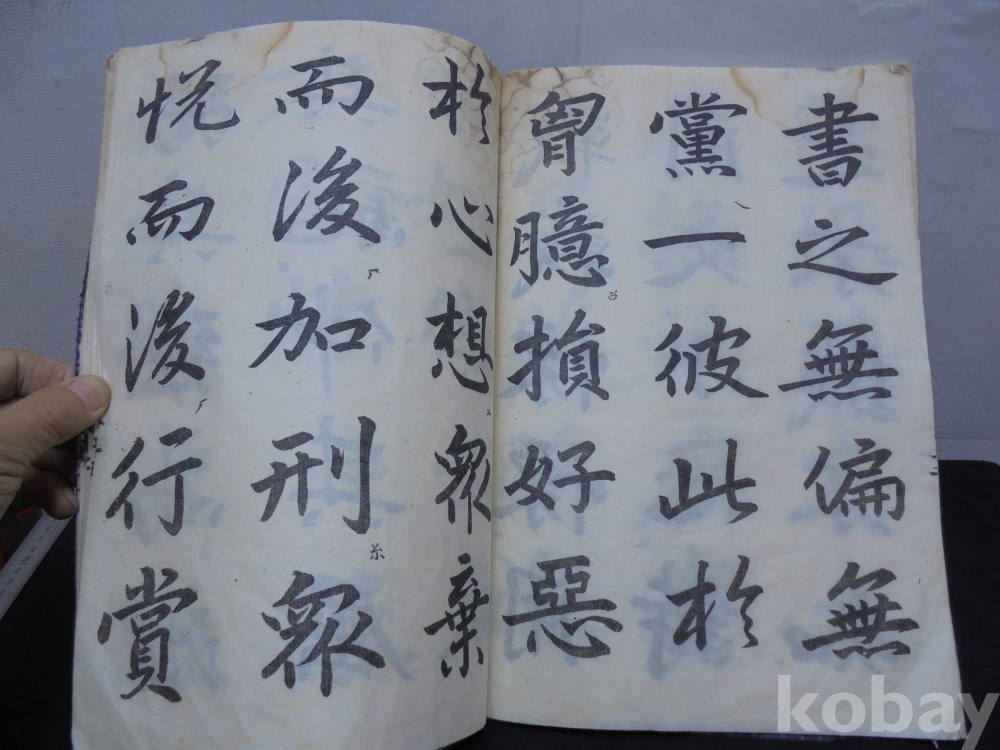 書之無偏無
黨一彼此於
胷臆損好惡
於心想衆棄
而後加刑衆
悦而後行賞
kobay